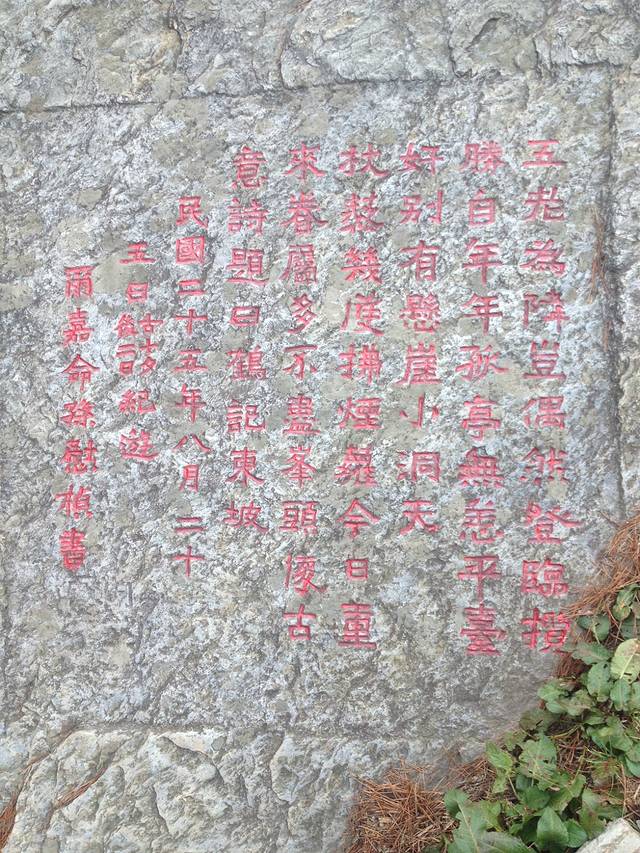 五老為隣豈偶然登臨攬
勝自年年孤亭無恙平臺
好别有懸崖小洞天
扶藜幾度拂煙蘿今日重
來眷屬多不盡峯頭懷古
意詩題曰鶴記東坡
民國二十五年八月二十
五日紀遊
爾嘉命孫慰楨書